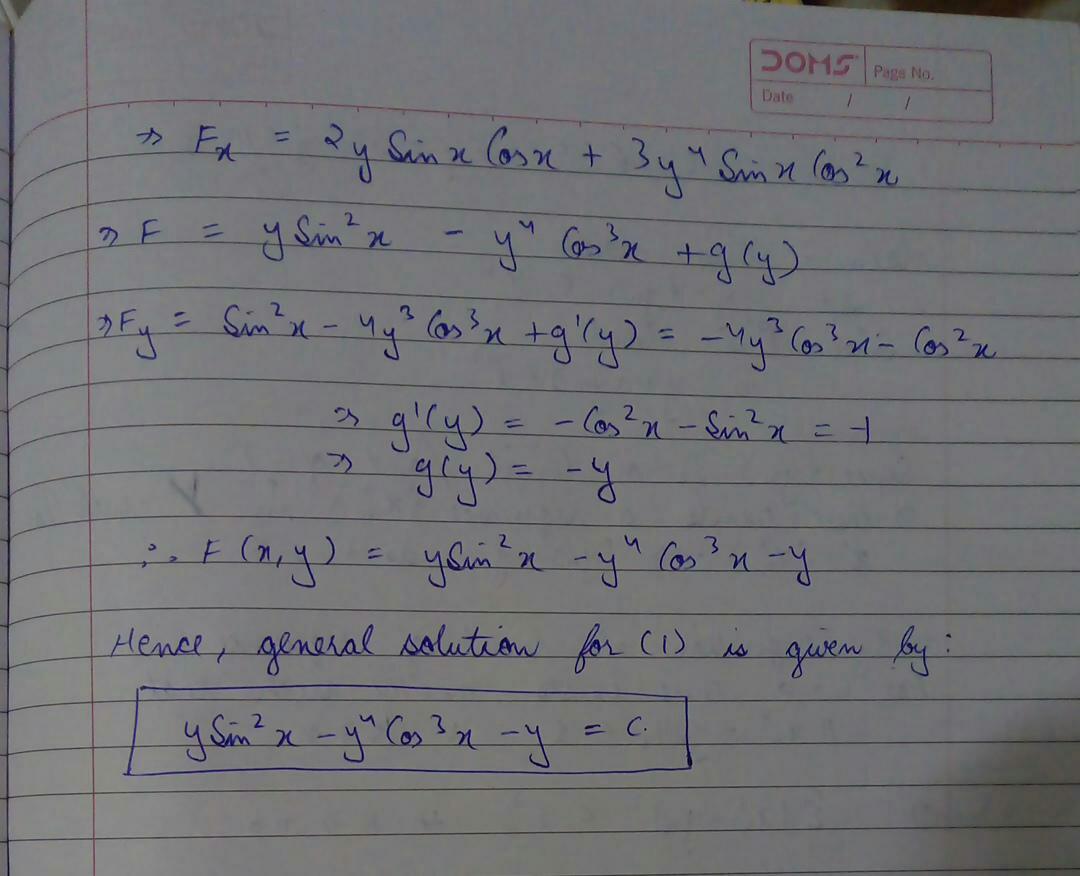 DOMS Page No.
Date / /
⇒ Fx = 2y Sin x Cos x + 3y⁴ Sin x Cos² x
⇒ F = y Sin² x - y⁴ Cos³ x + g(y)
⇒ Fy = Sin² x - 4y³ Cos³ x + g'(y) = -4y³ Cos³ x - Cos² x
⇒ g'(y) = -Cos² x - Sin² x = -1
⇒ g(y) = -y
∴ F(x,y) = y Sin² x - y⁴ Cos³ x - y
Hence, general solution for (1) is given by:
y Sin² x - y⁴ Cos³ x - y = C.